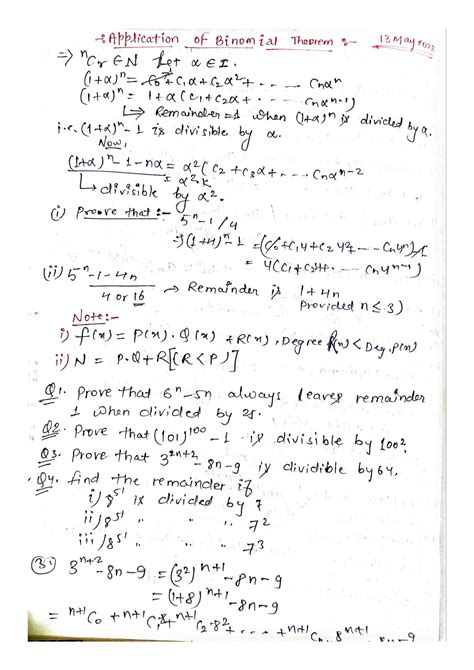 -: Application of Binomial Theorem :-
13 May 2022
=> ⁿCr ∈ N Let α ∈ I.
(1+α)ⁿ = C₀ + C₁α + C₂α² + - - - - Cnαⁿ
(1+α)ⁿ = 1 + α(C₁ + C₂α + - - - - Cnαⁿ⁻¹)
↳ Remainder = 1 when (1+α)ⁿ is divided by α.
i.e. (1+α)ⁿ - 1 is divisible by α.
Now,
(1+α)ⁿ - 1 - nα = α²(C₂ + C₃α + - - - - Cnαⁿ⁻²
= α².K
↳ divisible by α².
(i) Proove that :- 5ⁿ-1/4
=> (1+4)ⁿ - 1 = (C₀ + C₁4 + C₂4² - - - Cn4ⁿ) - 1
= 4(C₁ + - - - - Cn4ⁿ⁻¹)
(ii) 5ⁿ-1-4n
4 or 16
→ Remainder is 1+4n
Provided n ≤ 3)
Note:-
i) f(x) = P(x).Q(x) + R(x), Degree R(x) < Deg. P(x)
ii) N = P.Q+R[(R<P)]
Q1. Prove that 6ⁿ-5n always leaves remainder
1 when divided by 25.
Q2. Prove that (101)¹⁰⁰ - 1 is divisible by 100²
Q3. Prove that 3²ⁿ⁺² - 8n - 9 is dividible by 64.
Q4. find the remainder if
i) 8⁵¹ is divided by 7
ii) 8⁵¹ " " " 7²
iii) 8⁵¹ " " " 7³
(3.) 3ⁿ⁺² - 8n - 9 = (3²)ⁿ⁺¹ - 8n - 9
= (1+8)ⁿ⁺¹ - 8n - 9
= ⁿ⁺¹C₀ + ⁿ⁺¹C₁8 + ⁿ⁺¹C₂.8² + - - - + ⁿ⁺¹Cn 8ⁿ⁺¹ - 8n - 9